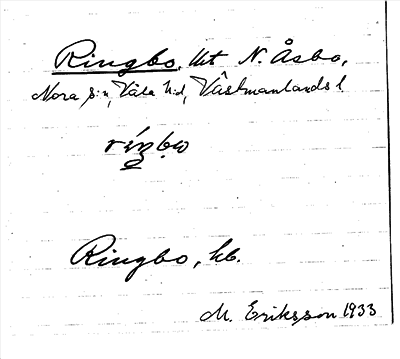 Ringbo, tkt N. Åsbo,
Nora s:n, Våla h:d, Västmanlands l
Ringbo, kb.
M. Eriksson 1933